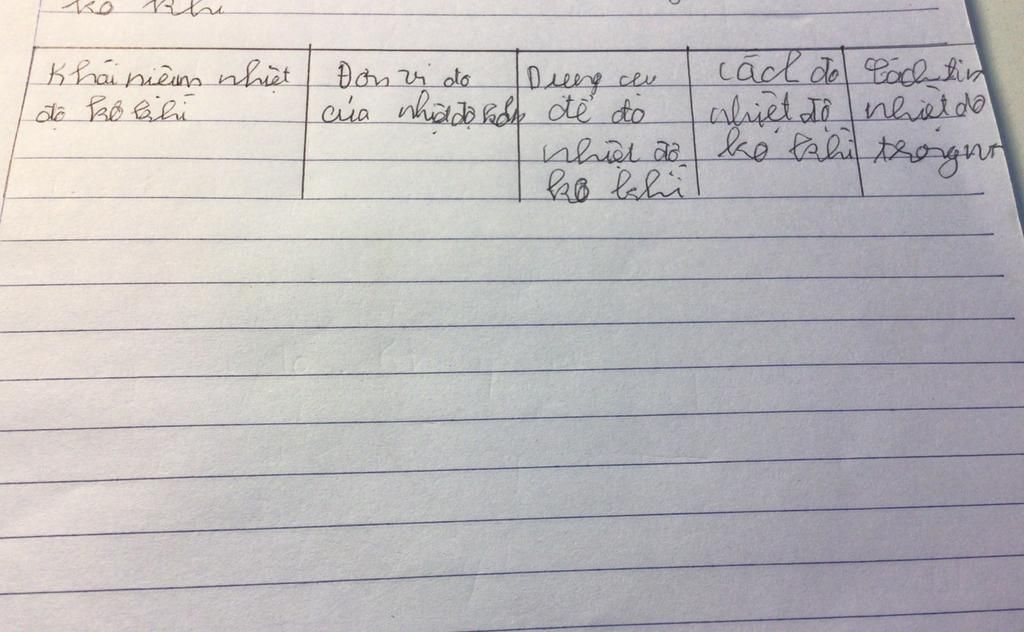 ko khí
Khái niệm nhiệt
độ kô khí
Đơn vị đo
của nhiệt độ kôk
Dụng cụ
để đo
nhiệt độ
kô khí
Cách đo
nhiệt độ
kô khí
Cách tín
nhiệt độ